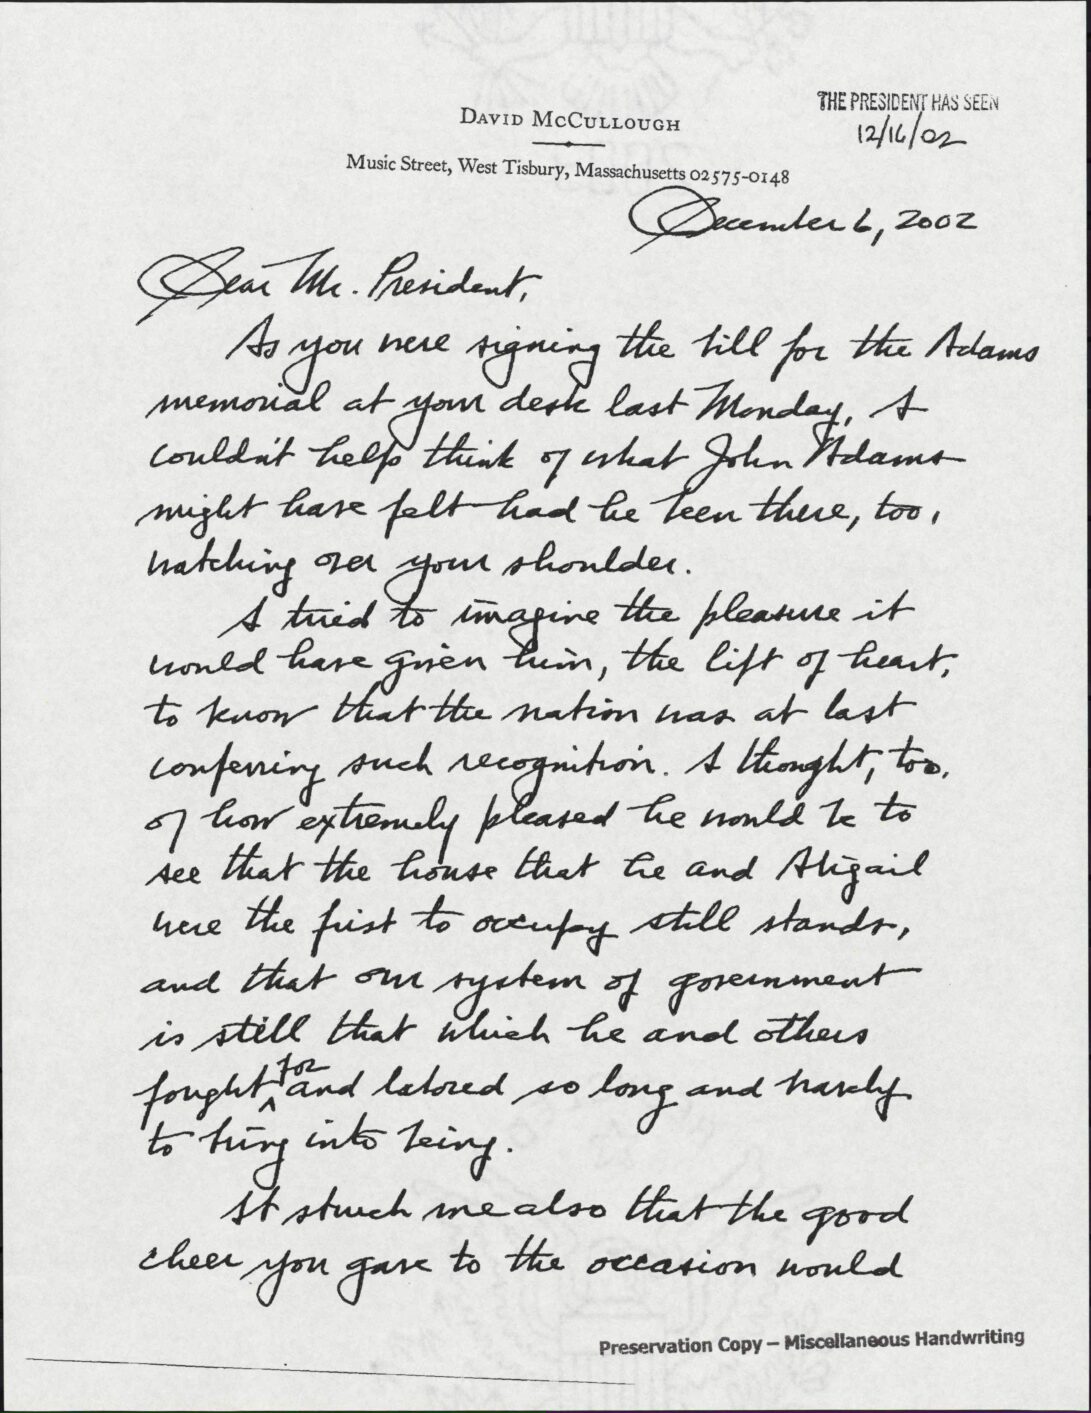 DAVID McCULLOUGH
THE PRESIDENT HAS SEEN
12/16/02
Music Street, West Tisbury, Massachusetts 02575-0148
December 6, 2002
Dear Mr. President,
As you were signing the bill for the Adams
memorial at your desk last Monday, I
couldn't help think of what John Adams
might have felt had he been there, too,
watching over your shoulder.
I tried to imagine the pleasure it
would have given him, the lift of heart,
to know that the nation was at last
conferring such recognition. I thought, too,
of how extremely pleased he would be to
see that the house that he and Abigail
were the first to occupy still stands,
and that our system of government
is still that which he and others
fought for and labored so long and hard
to bring into being.
It struck me also that the good
cheer you gave to the occasion would
Preservation Copy – Miscellaneous Handwriting